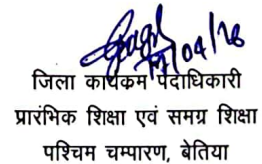 17/04/26
जिला कार्यक्रम पदाधिकारी
प्रारंभिक शिक्षा एवं समग्र शिक्षा
पश्चिम चम्पारण, बेतिया